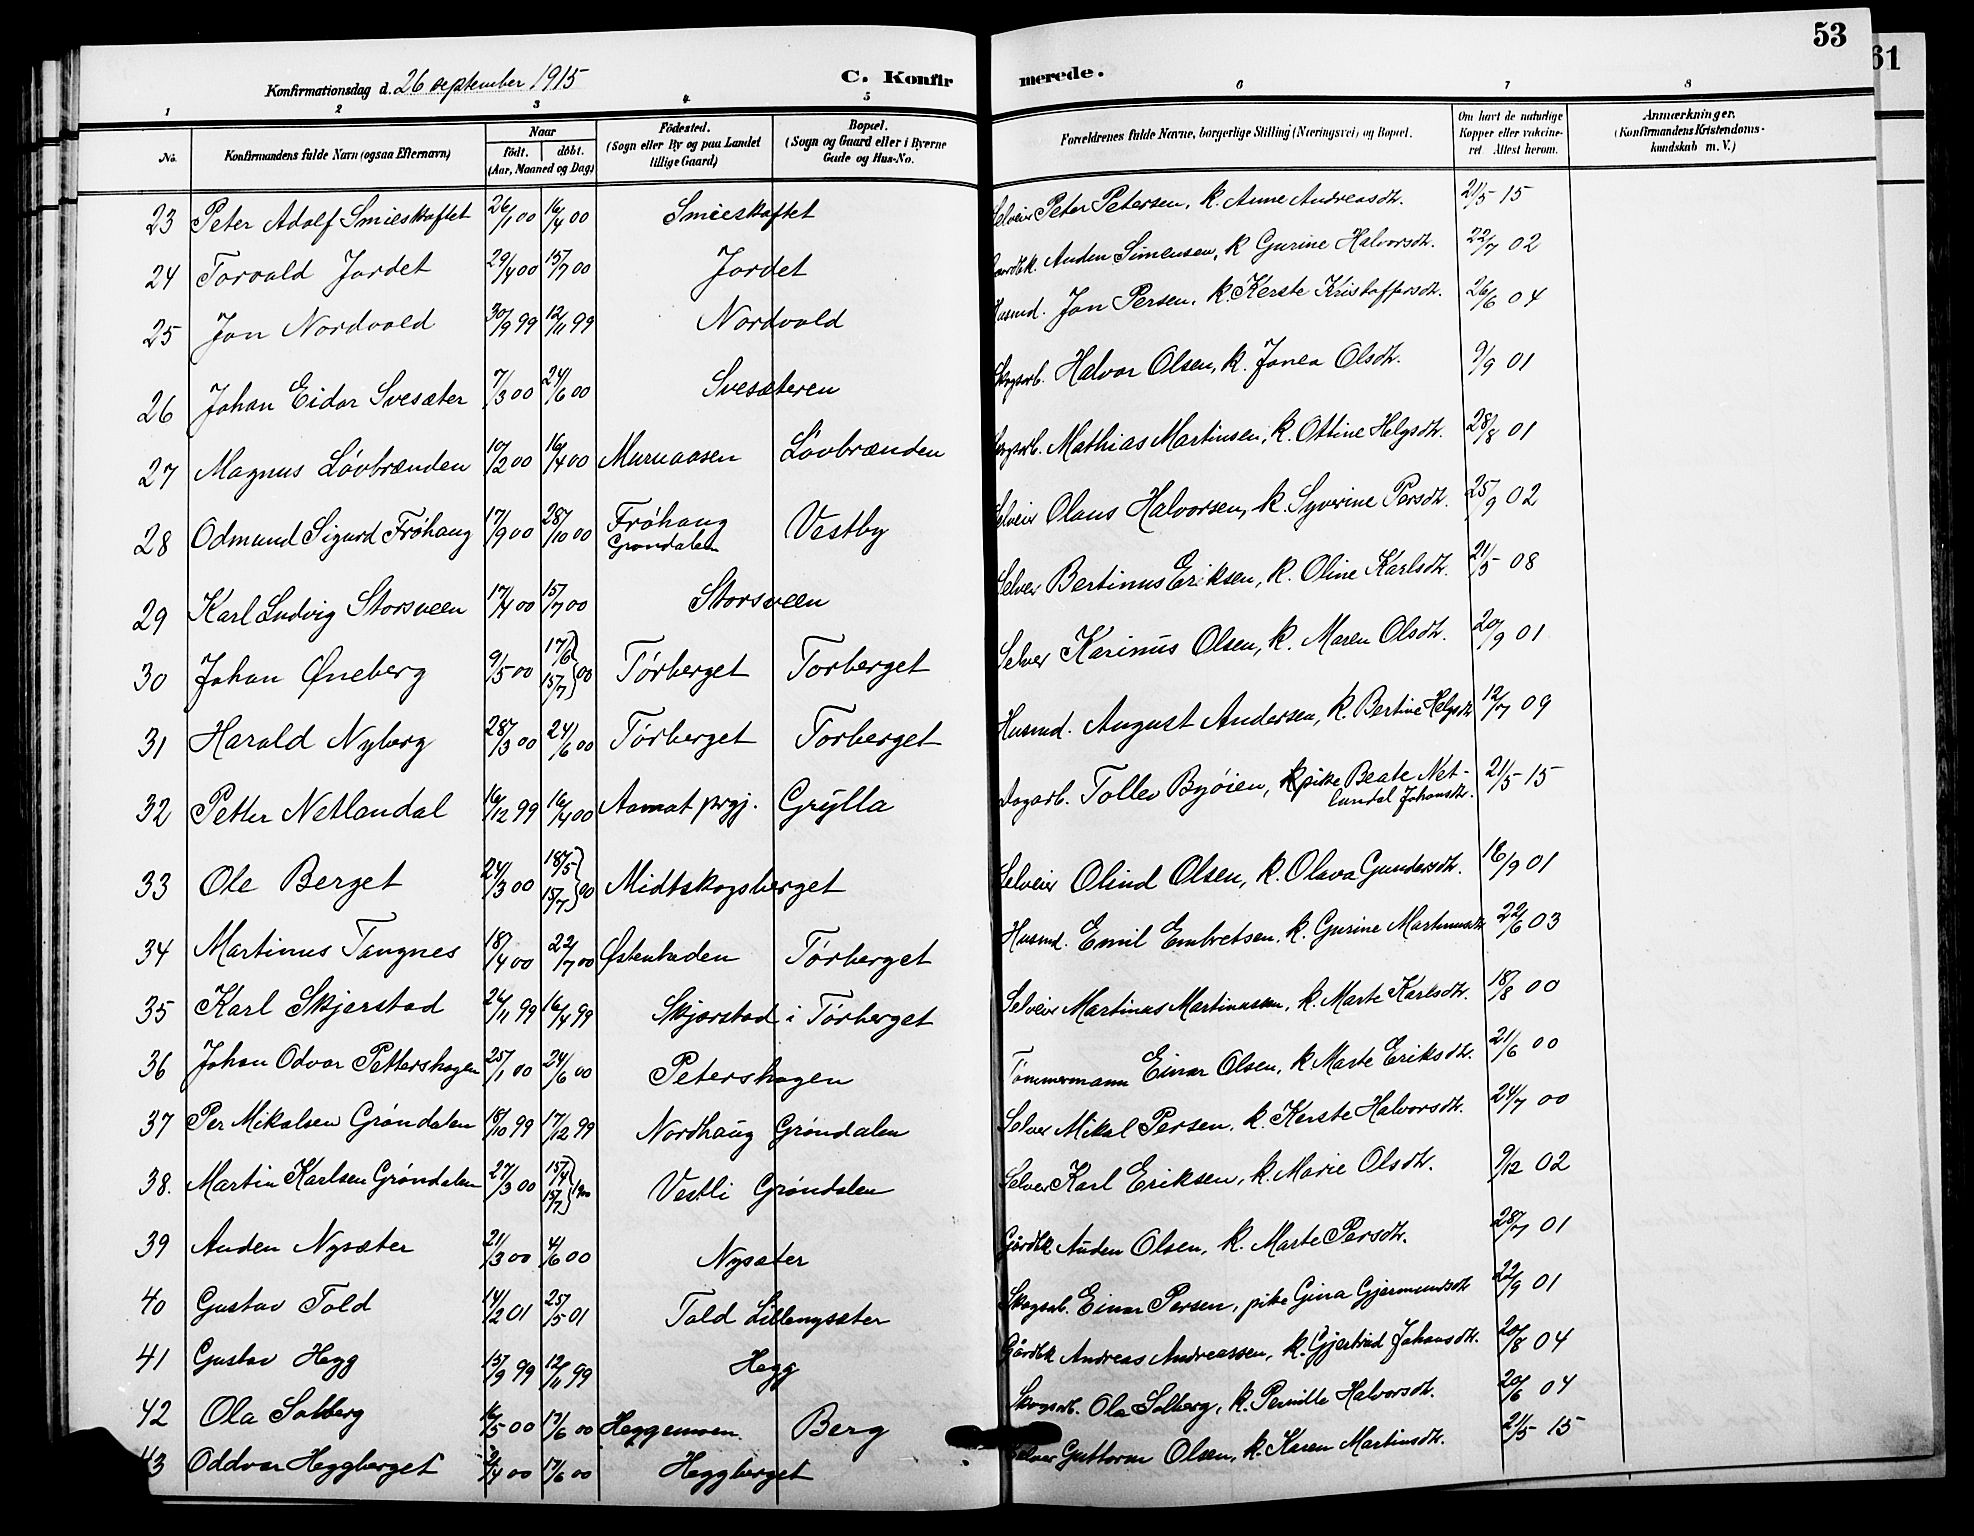 53
61
Konfirmationsdag d. 26 september 1915
C. Konfirmerede.
1 2 3 4 5 6 7 8
No. Konfirmandens fulde Navn (ogsaa Efternavn) Naar født. døbt. (Aar, Maaned og Dag) Födested. (Sogn eller By og paa Landet tillige Gaard) Bopæl. (Sogn og Gaard eller i Byerne Gade og Hus-No. Forældrenes fulde Navne, borgerlige Stilling (Næringsvei) og Bopæl. Om havt de naturlige Kopper eller vakcineret Attest herom. Anmærkninger. (Konfirmandens Kristendomskundskab m. V.)
23 Peter Adolf Smieskaftet 26/1 00 16/4 00 Smieskaftet Selveier Peter Petersen, k. Anne Andreasdtr. 21/5 15
24 Torvald Jordet 29/4 00 15/7 00 Jordet Gaardbk. Auden Simensen, k Gurine Halvorsdtr. 22/7 02
25 Jon Nordvold 30/9 99 12/11 99 Nordvold Husmd. Jon Persen, k. Kerste Kristoffersdtr. 26/6 04
26 Johan Eidar Svesæter 7/3 00 24/6 00 Svesæteren Skogsarb. Halvor Olsen, k. Jonea Olsdtr. 9/9 01
27 Magnus Lövbrænden 10/2 00 16/4 00 Muruaasen Lövbrænden Skogsarb. Mathias Martinsen, k. Ottine Helgsdtr. 28/8 01
28 Odmund Sigurd Fröhaug 17/9 00 28/10 00 Fröhaug Grøndalen Vestby Selveier Olaus Halvorsen, k. Syverine Persdtr. 25/9 02
29 Karl Ludvig Storsveen 17/4 00 15/7 00 Storsveen Selveier Bertinus Eriksen, k. Oline Karlsdtr. 21/5 08
30 Johan Øneberg 9/5 00 17/6 15/7 } 00 Törberget Torberget Selveier Karinus Olsen, k. Maren Olsdtr. 20/9 01
31 Harald Nyberg 28/3 00 24/6 00 Törberget Torberget Husmd. August Andersen, k. Bertine Helgsdtr 12/7 09
32 Petter Netlandal 16/12 99 16/4 00 Aamot prgj. Grylla Dagarb. Tollev Byöien, k pike Beate Net-
landal Johansdtr. 21/5 15
33 Ole Berget 24/3 00 18/5 15/7 } 00 Midtskogsberget Selveier Olind Olsen, k. Olava Gundersdtr. 16/9 01
34 Martinus Tangnes 18/4 00 22/7 00 Østenheden Törberget Husmd. Emil Embretsen, k. Gurine Martinusdtr 22/6 03
35 Karl Skjærstad 26/11 99 16/4 99 Skjærstad i Törberget Selveier Martinus Martinussen, k. Marte Karlsdtr. 18/8 00
36 Johan Odvar Pettershagen 25/1 00 24/6 00 Petershagen Tömmermann Einar Olsen, k Marte Eriksdtr. 21/6 00
37 Per Mikalsen Gröndalen 18/10 99 17/12 99 Nordhaug Gröndalen Selveier Mikal Persen, k. Kerste Halvorsdtr. 24/7 00
38. Martin Karlsen Gröndalen 27/3 00 15/4 15/7 } 1900 Vestli Gröndalen Selveier Karl Eriksen, k. Marie Olsdtr. 9/12 02
39 Auden Nysæter 21/3 00 4/6 00 Nysæter Gårdbk Auden Olsen, k. Marte Persdtr. 28/7 01
40 Gustav Told 14/2 01 25/5 01 Told Lillenysæter Skogsarb. Einar Persen, pike Gina Gjermundsdtr 22/9 01
41 Gustav Hegg 15/9 99 12/11 99 Hegg Gårdbk Andreas Andreassen, k. Gjertrud Johansdtr. 20/8 04
42 Ola Solberg 16/5 00 17/6 00 Heggemoen. Berg Skogsarb. Ola Solberg, k. Pernille Halvorsdtr. 20/6 04
43 Oddvar Heggberget /4 00 17/6 00 Heggberget Selveier Guttorm Olsen, k. Karen Martinsdtr. 21/5 15